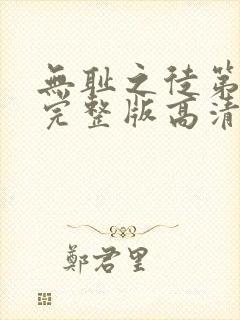 無耻之徒第
完整版高清
鄭君里